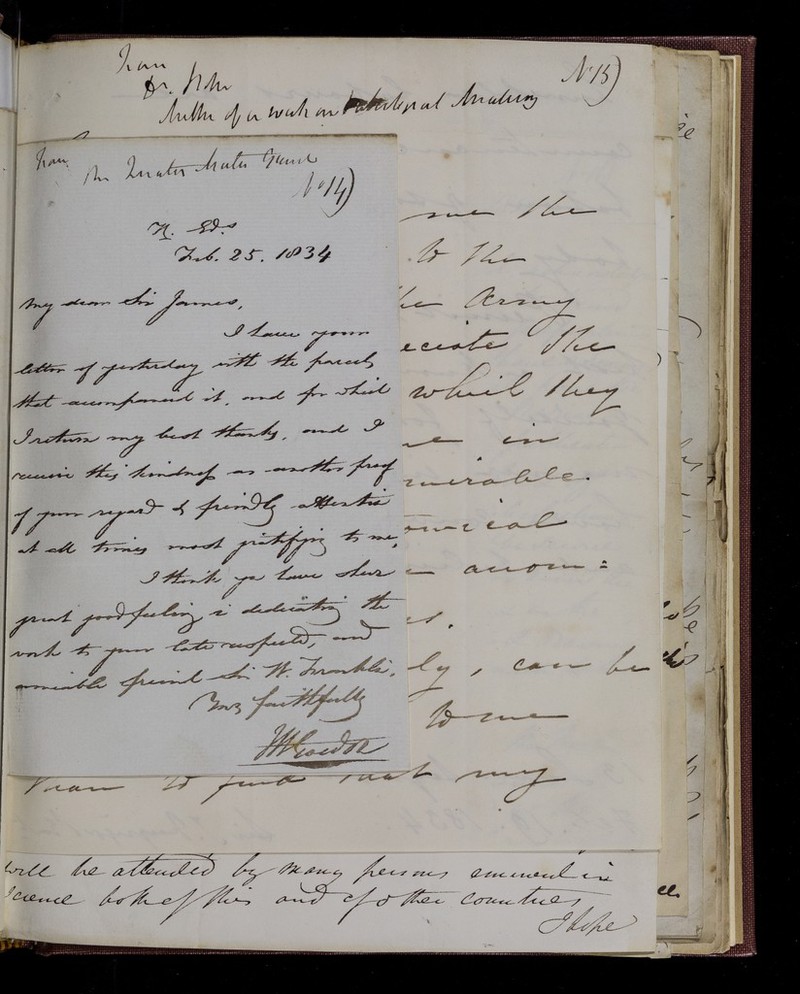 from
Dr.
Author of a work on Pathological Anatomy
No 15)
from
The Quarter Master General
No 14)
H. Gds
Feb. 25. 1834
My dear Sir James,
I have your
letter of yesterday with the parcel
that accompanied it, and for which
I return my best thanks, and I
receive this kindness as another proof
of your regard & friendly attention
at all times most gratifying to me.
I think you have shewn
great good feeling in dedicating the
work to your late respected, and
amiable friend Sir W. Franklin.
Yours faithfully
JWGordon
me the
to the
the Army
eciate the
which they
in
mirable.
omical
accom=
ly, can be
to me
than to find that my
will be attended by many persons eminent in
Science both of this and of other countries
I hope